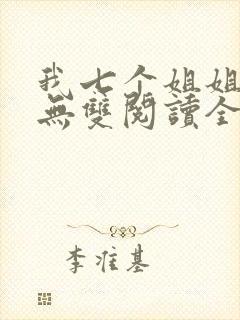 我七个姐姐
無雙閱讀全
李准基